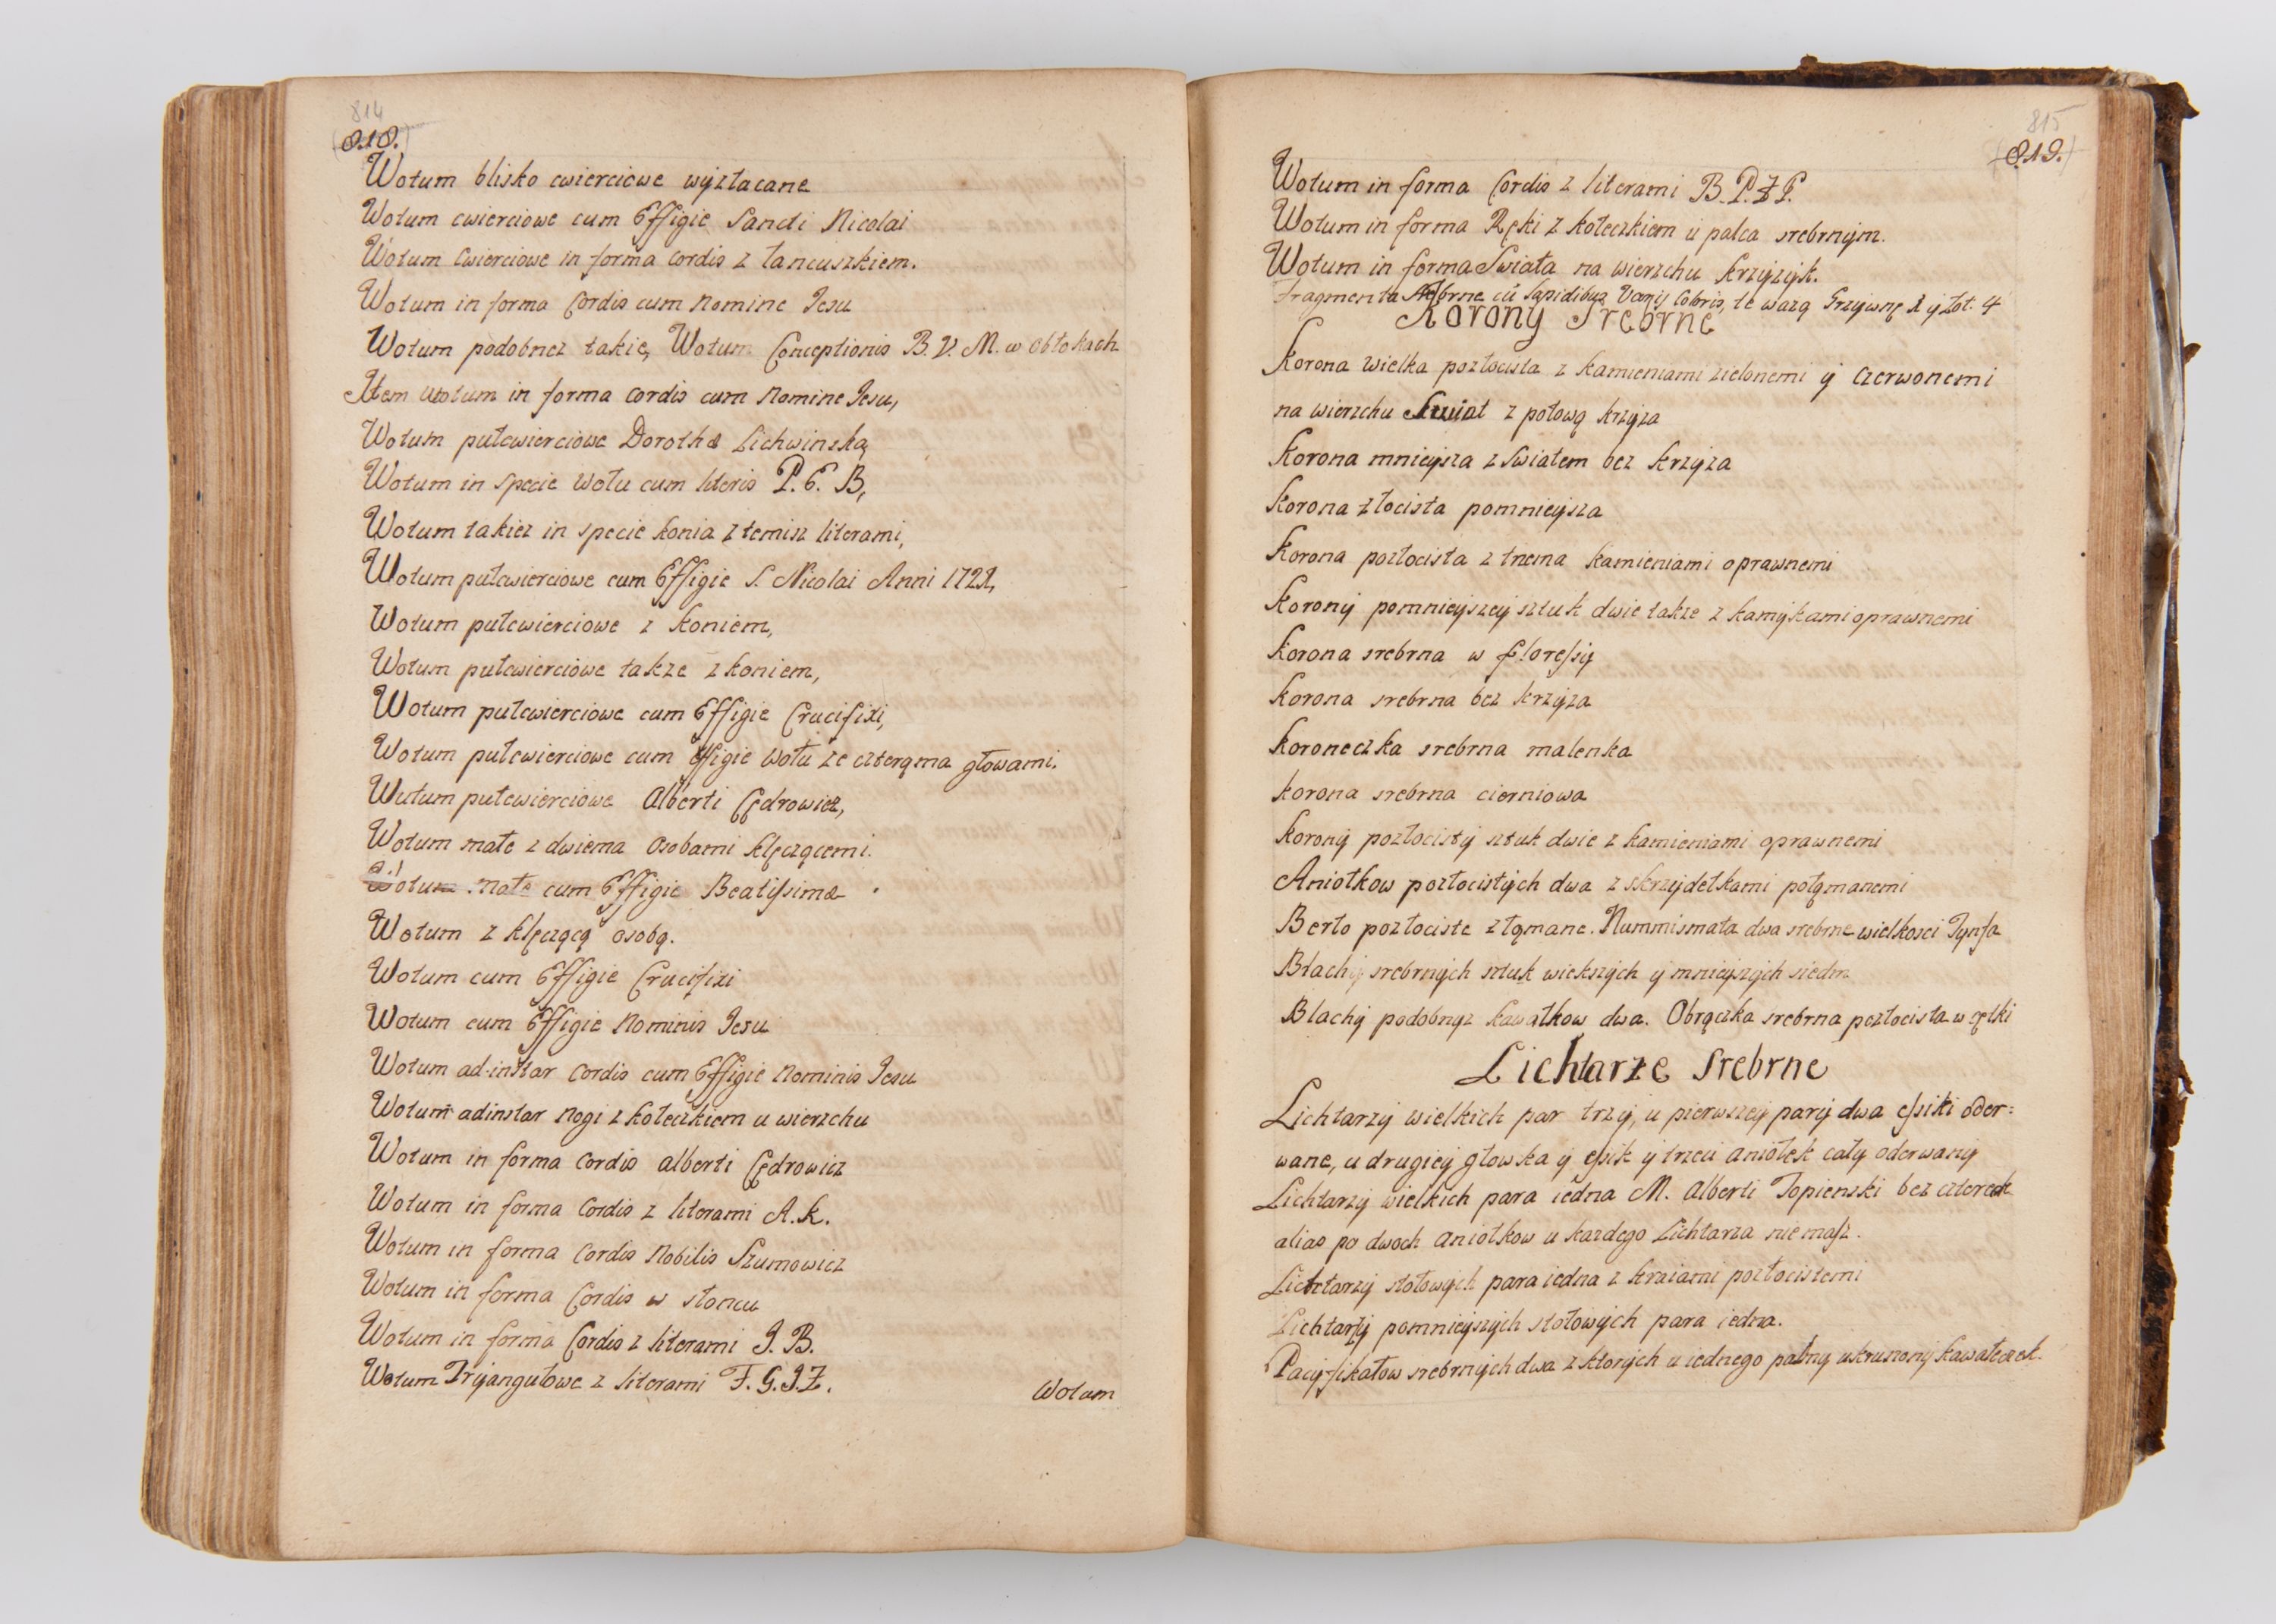 814
818.
Wotum blisko cwierciowe wyzłacane
Wotum cwierciowe cum Effigie Sancti Nicolai
Wotum Cwierciowe in forma Cordis z łancuszkiem.
Wotum in forma Cordis cum Nomine Jesu
Wotum podobnez takie, Wotum Conceptionis B. V. M. w Obłokach
Item Wotum in forma Cordis cum Nomine Jesu,
Wotum pułcwierciowe Dorothæ Lichwinska,
Wotum in specie Wołu cum literis P. E. B,
Wotum takiez in specie konia z temisz literami,
Wotum pułcwierciowe cum Effigie S. Nicolai Anni 1721,
Wotum pułcwierciowe z koniem,
Wotum pułcwierciowe takze z koniem,
Wotum pułcwierciowe cum Effigie Crucifixi,
Wotum pułcwierciowe cum Effigie Wołu ze czterąma głowami.
Wutum pułcwierciowe Alberti Cędrowicz,
Wotum małe z dwiema Osobami klęczącemi.
Wotum Małe cum Effigie Beatissimæ
Wotum z klęczącą osobą.
Wotum cum Effigie Crucifixi
Wotum cum Effigie Nominis Jesu
Wotum ad-instar Cordis cum Effigie Nominis Jesu
Wotum adinstar Nogi z kołeczkiem u wierzchu
Wotum in forma Cordis Alberti Cędrowicz
Wotum in forma Cordis z literami A. K.
Wotum in forma Cordis Nobilis Szumowicz
Wotum in forma Cordis w słoncu
Wotum in forma Cordis z literami J. B.
Wotum Tryangułowe z literami F. G. J Z.
Wotum
815
819.
Wotum in forma Cordis z literami B. P. Z P.
Wotum in forma Ręki z kołeczkiem u palca srebrnym.
Wotum in forma Swiata na wierzchu krzyzyk.
Fragmenta srebrne cū Lapidibus Varij Coloris, te wazą Grzywnę 1 y Łot. 4
Korony Srebrne
Korona Wielka pozłocista z kamieniami zielonemi y Czerwonemi
na wierzchu Swiat z połową krzyza
Korona mnieysza z Swiatem bez krzyza
Korona złocista pomnieysza
Korona pozłocista z trzema kamieniami oprawnemi
Korony pomnieyszey sztuk dwie takze z kamykami oprawnemi
Korona srebrna w floressy
Korona srebrna bez krzyza
Koroneczka srebrna malenka
Korona srebrna cierniowa
Korony pozłocisty sztuk dwie z kamieniami oprawnemi
Aniołkow pozłocistych dwa z skrzydełkami połąmanemi
Berło pozłociste złąmane. Nummismata dwa srebrne wielkosci Tynfa
Blachy srebrnych sztuk wiekszych y mnieyszych siedm
Blachy podobnyz kawałkow dwa. Obrączka srebrna pozłocista w cętki
Lichtarze Srebrne
Lichtarzy wielkich par trzy, u pierwszey pary dwa essiki oder=
wane, u drugiey głowska y essik y trzeci Aniołek cały oderwany
Lichtarzy wielkich para iedna M. Alberti Topienski bez czterech
alias po dwoch Aniołkow u kazdego Lichtarza nie masz.
Lichtarzy stołowych para iedna z kraiami pozłocistemi
Lichtarzy pomnieyszych stołowych para iedna.
Pacyfikałow srebrnych dwa z ktorych u iednego palmy ukruszony kawałeczek.